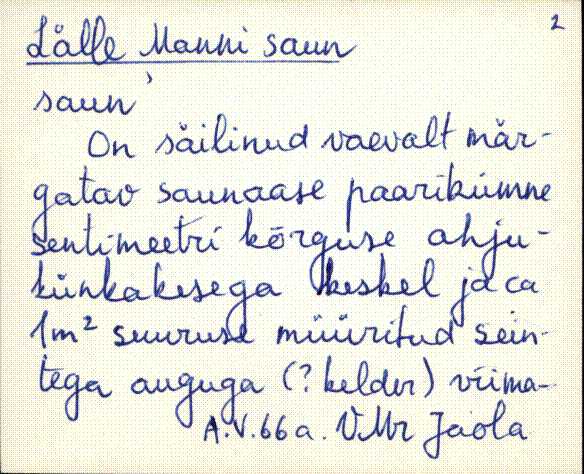 2
Lälle Manni saun
saun'
On säilinud vaevalt mär-
gatav saunaase paarikümne
sentimeetri kõrguse ahju-
künkakesega keskel ja ca
1m² suuruse müüritud sein-
tega auguga (? kelder) viima-
A.V. 66 a. VMr Jaola